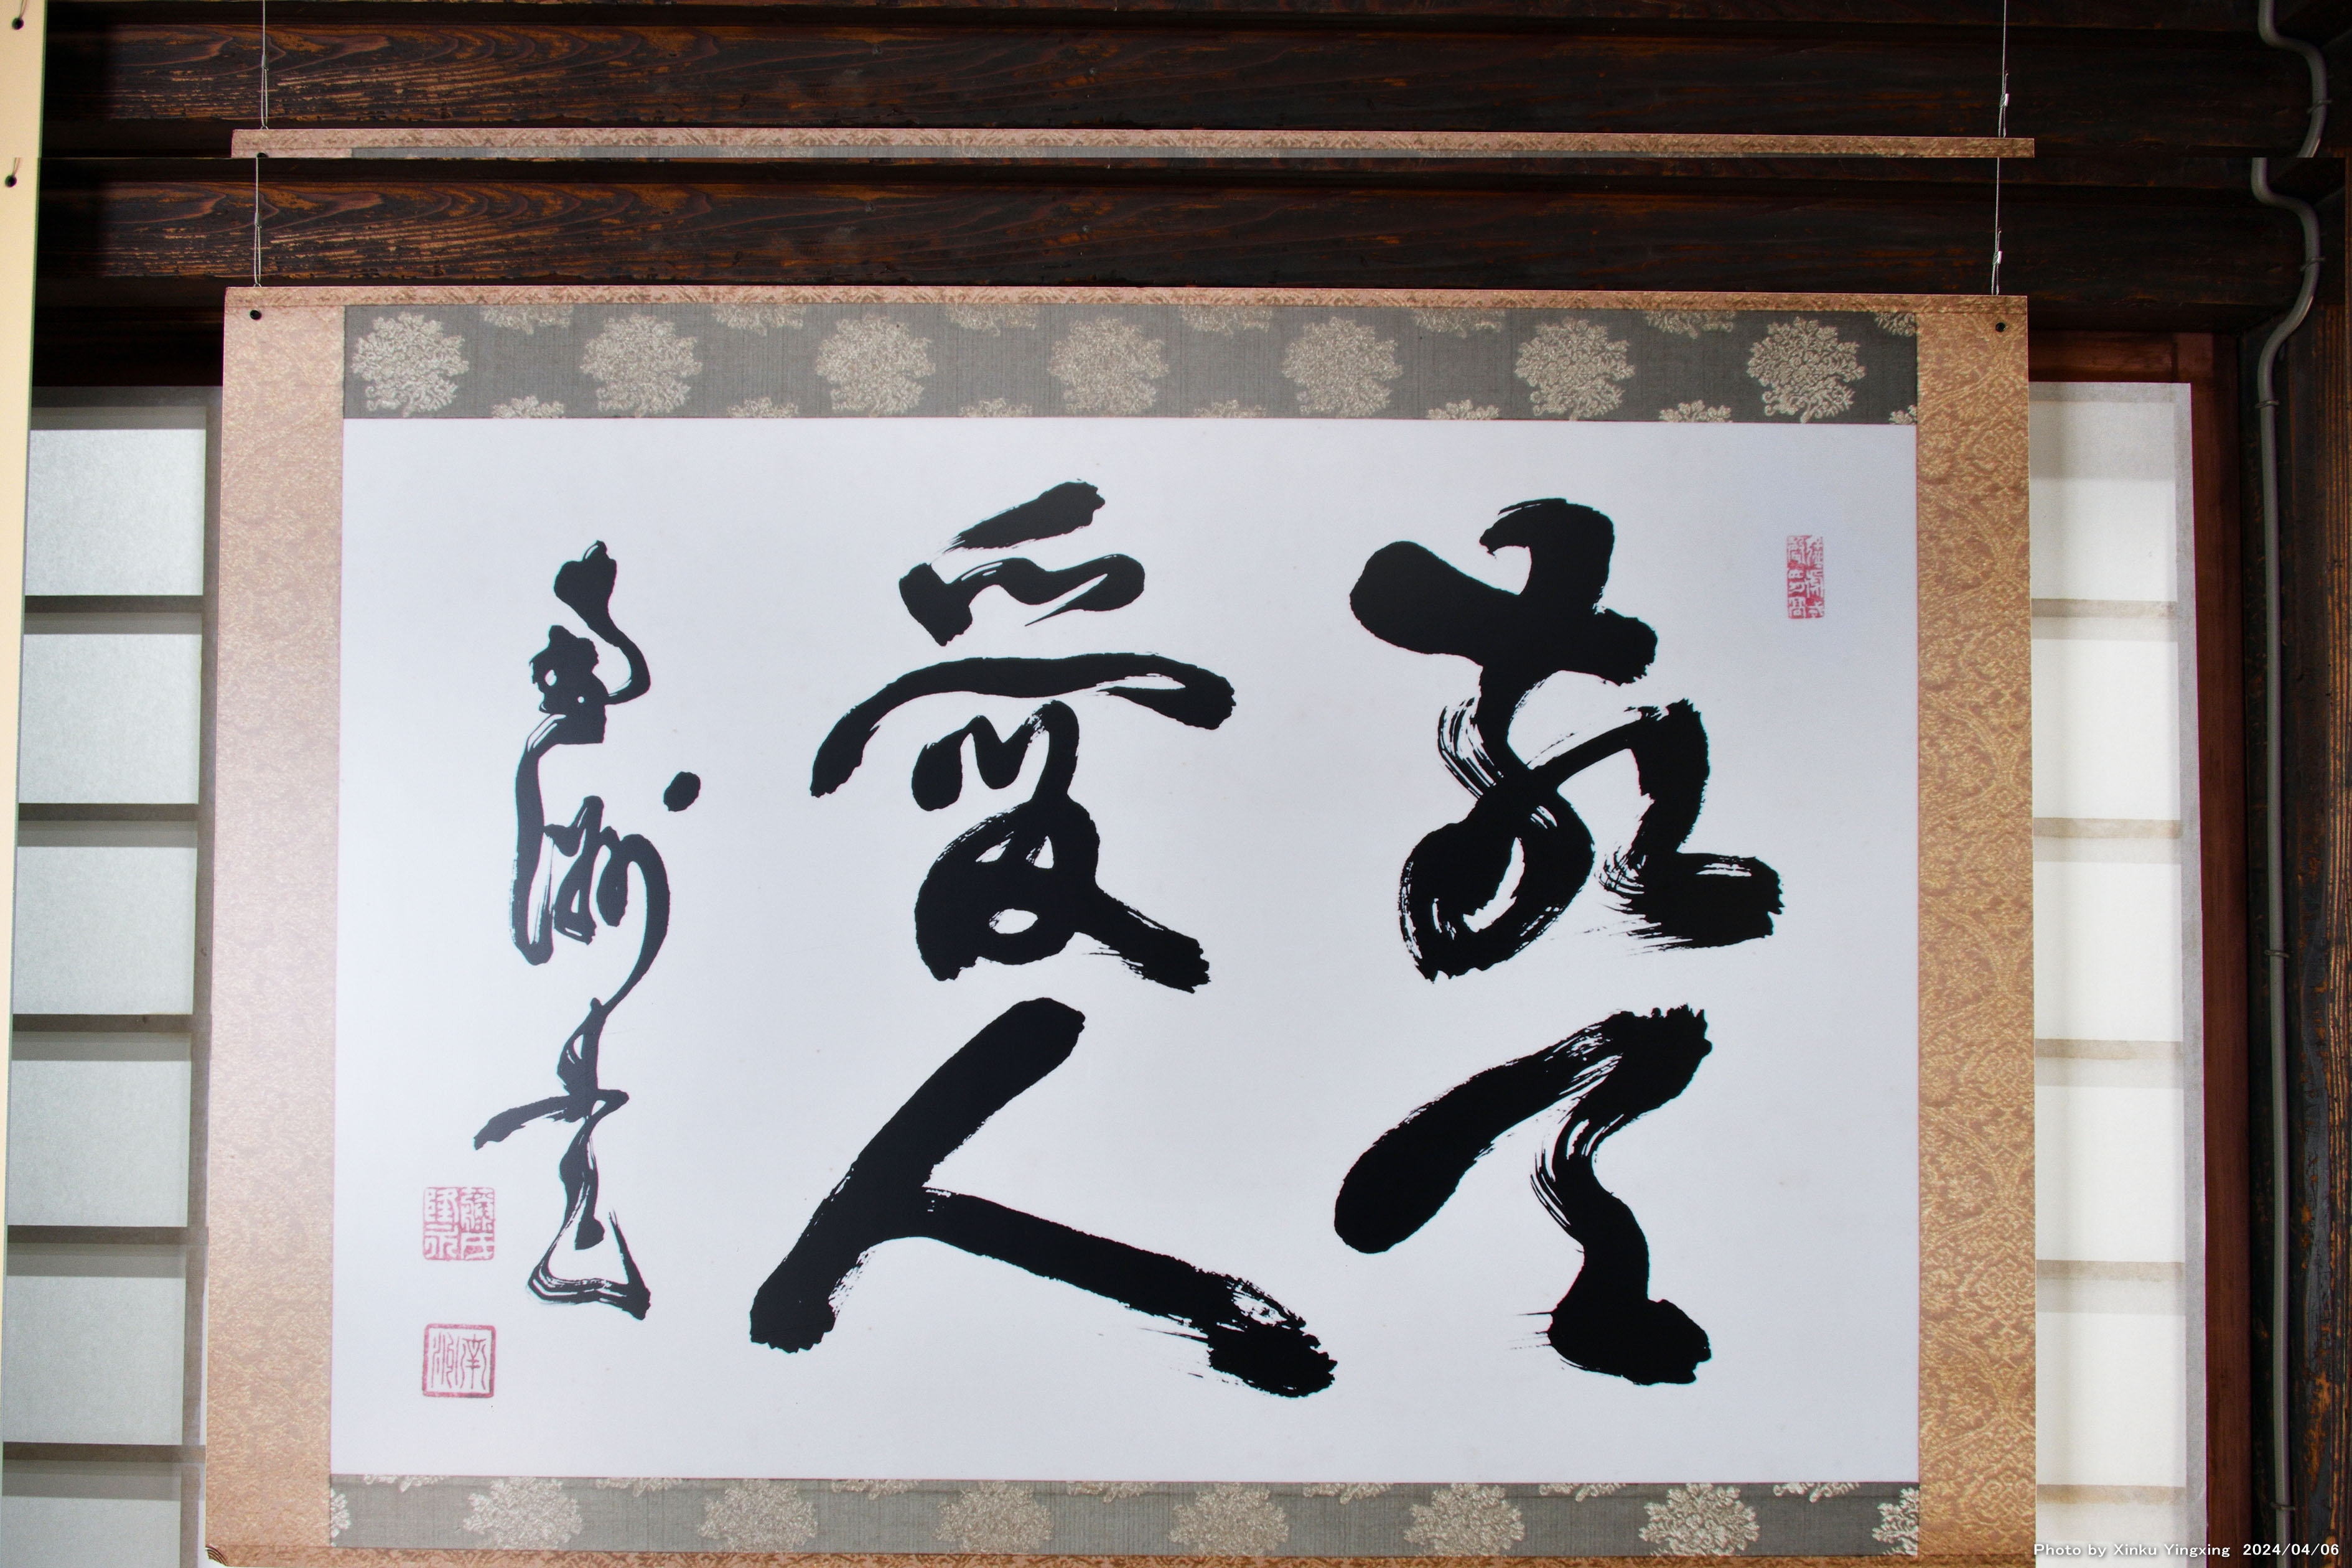 敬天
愛人
南洲書
Photo by Xinku Yingxing 2024/04/06